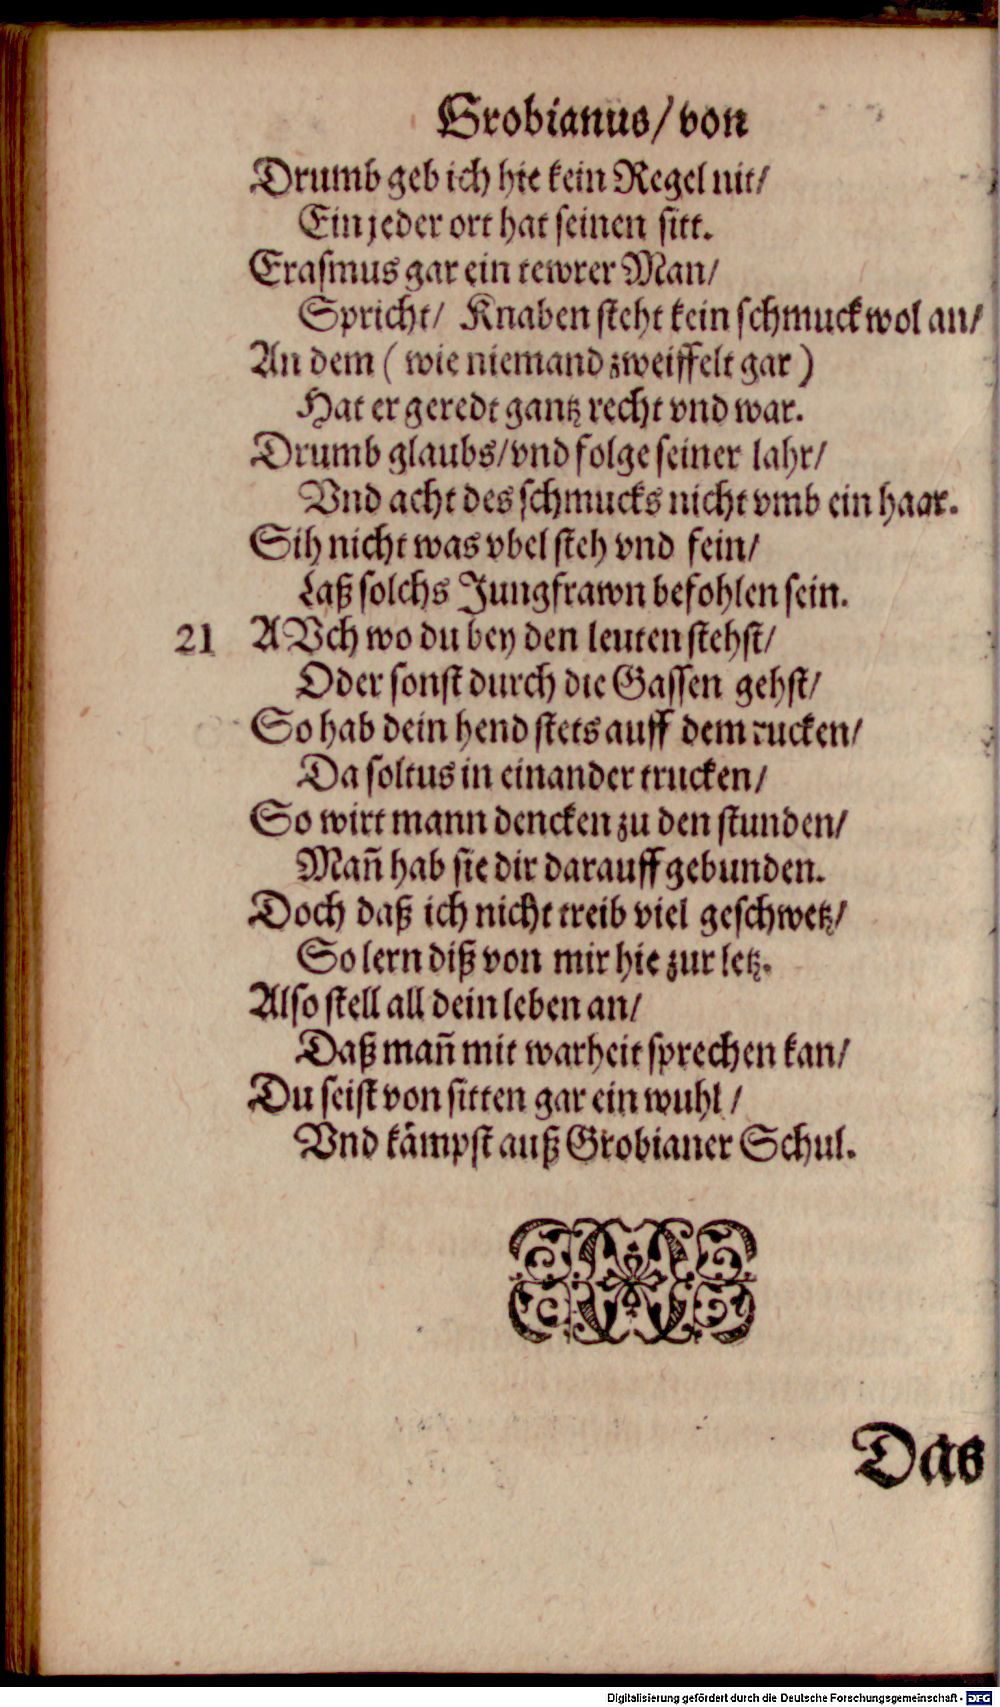 Grobianus/ von
Drumb geb ich hie kein Regel nit/
Ein jeder ort hat seinen sitt.
Erasmus gar ein tewrer Man/
Spricht/ Knaben steht kein schmuck wol an/
An dem ( wie niemand zweiffelt gar )
Hat er geredt gantz recht vnd war.
Drumb glaubs/ vnd folge seiner lahr/
Vnd acht des schmucks nicht vmb ein haar.
Sih nicht was vbel steh vnd fein/
Laß solchs Jungfrawn befohlen sein.
21 AVch wo du bey den leuten stehst/
Oder sonst durch die Gassen gehst/
So hab dein hend stets auff dem rucken/
Da soltus in einander trucken/
So wirt mann dencken zu den stunden/
Mañ hab sie dir darauff gebunden.
Doch daß ich nicht treib viel geschwetz/
So lern diß von mir hie zur letz.
Also stell all dein leben an/
Daß mañ mit warheit sprechen kan/
Du seist von sitten gar ein wuhl/
Vnd kämpst auß Grobianer Schul.
Das
Digitalisierung gefördert durch die Deutsche Forschungsgemeinschaft - DFG